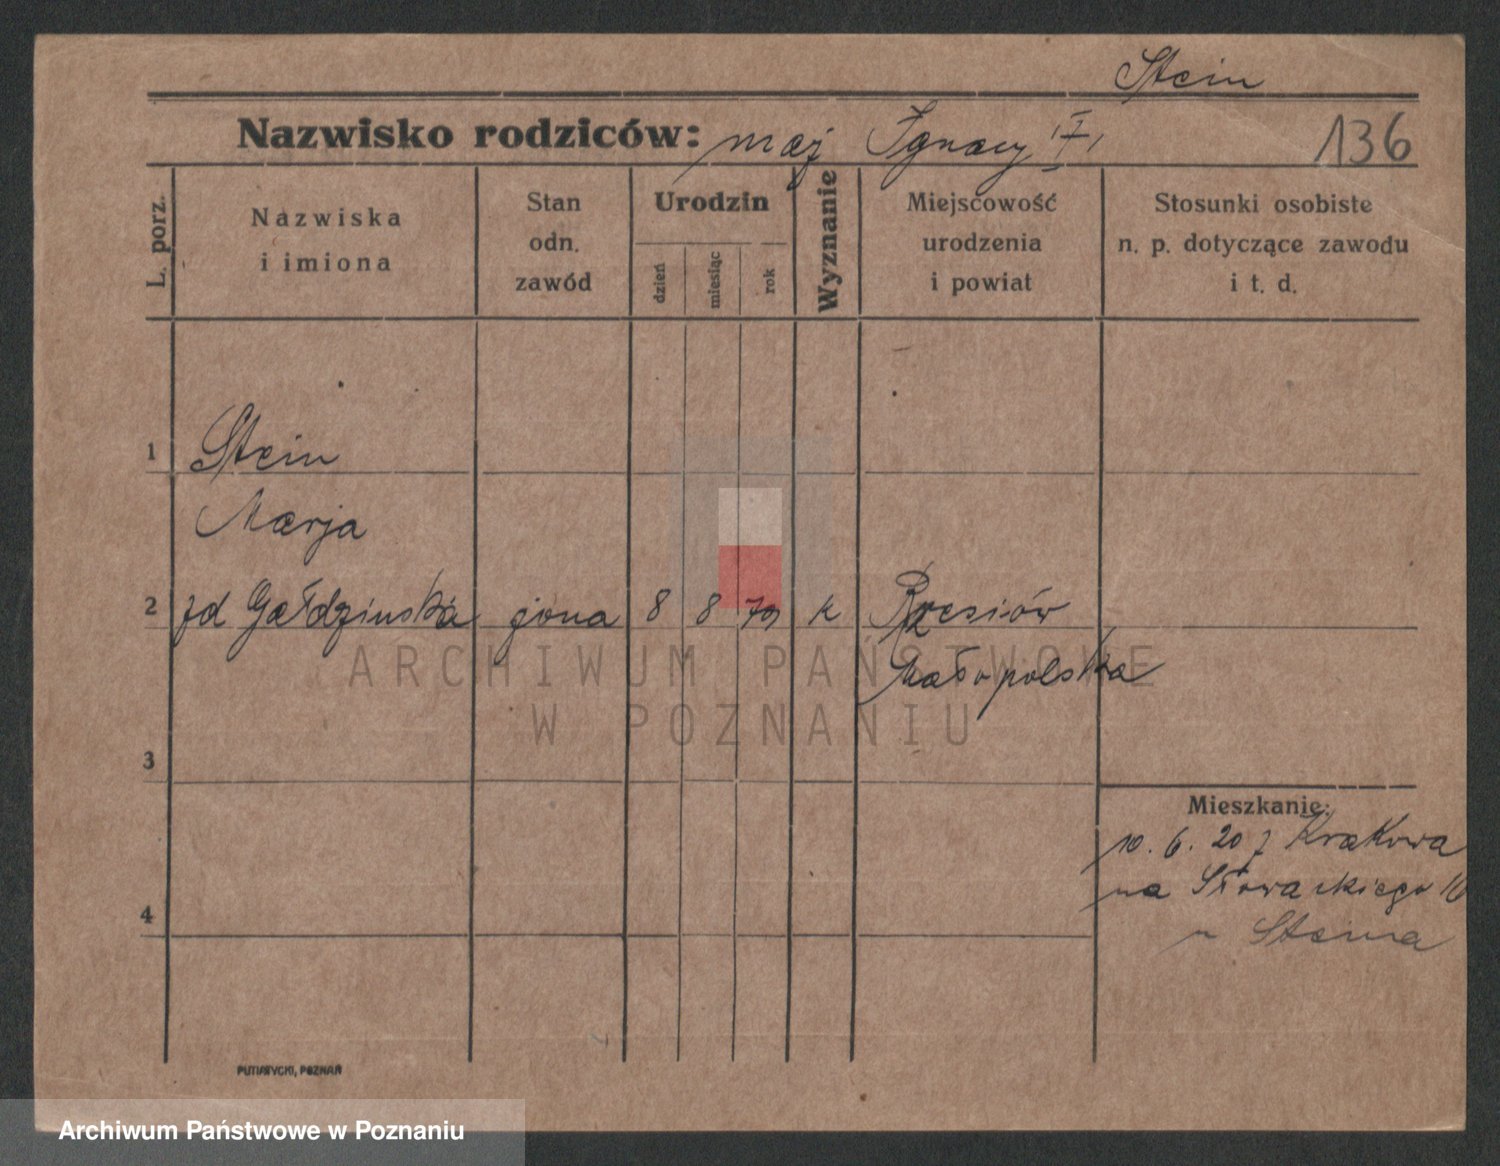 Stein
Nazwisko rodziców: mąż Ignacy "I"
136
L. porz.
Nazwiska
i imiona
Stan
odn.
zawód
Urodzin
dzień
miesiąc
rok
Wyznanie
Miejscowość
urodzenia
i powiat
Stosunki osobiste
n. p. dotyczące zawodu
i t. d.
1
Stein
Marja
2 zd Gałdzińska żona 8 8 79 k Rzesiów
Małopolska
ARCHIWUM PAŃSTWOWE
W POZNANIU
3
Mieszkanie:
10. 6. 20 z Krakowa
na Słowackiego
u Steina
4
PUTIATYCKI, POZNAŃ
Archiwum Państwowe w Poznaniu